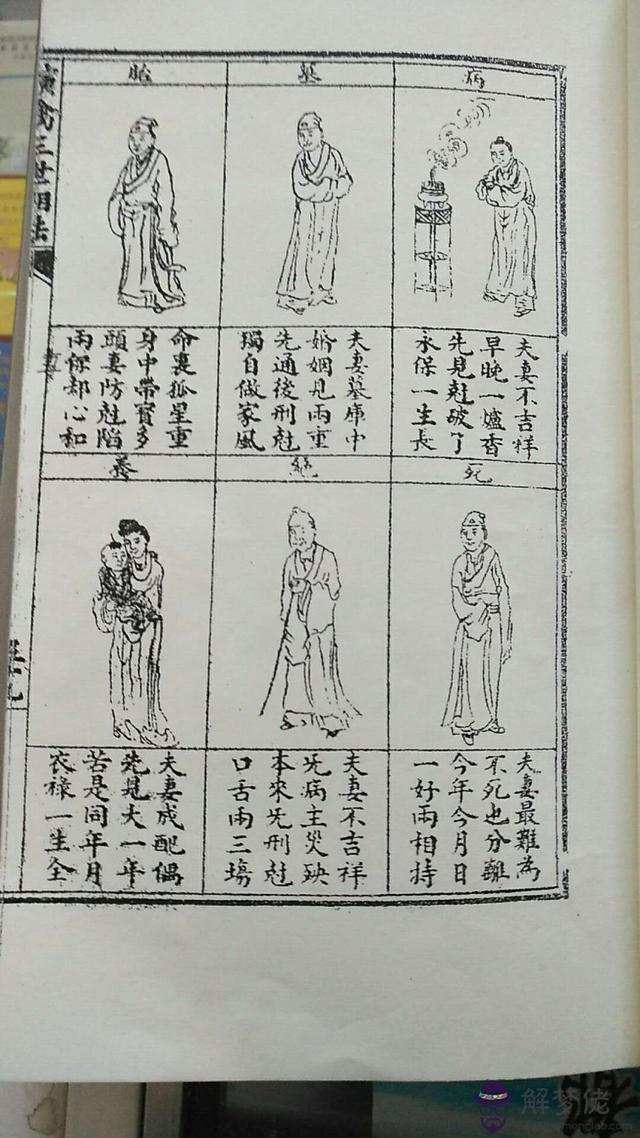 演禽三世相法
病
夫妻不吉祥
早晚一爐香
先見尅破了
永保一生長
墓
夫妻墓庫中
婚姻見兩重
先通後刑尅
獨自做家風
胎
命裏孤星重
身中帶寶多
頭妻防尅陷
兩保却心和
死
夫妻最難為
不死也分離
今年今月日
一好兩相持
絕
夫妻不吉祥
旡病主災殃
本來旡刑尅
口舌兩三塲
養
夫妻成配偶
先見大一年
若是同年月
衣祿一生全
解梦佬